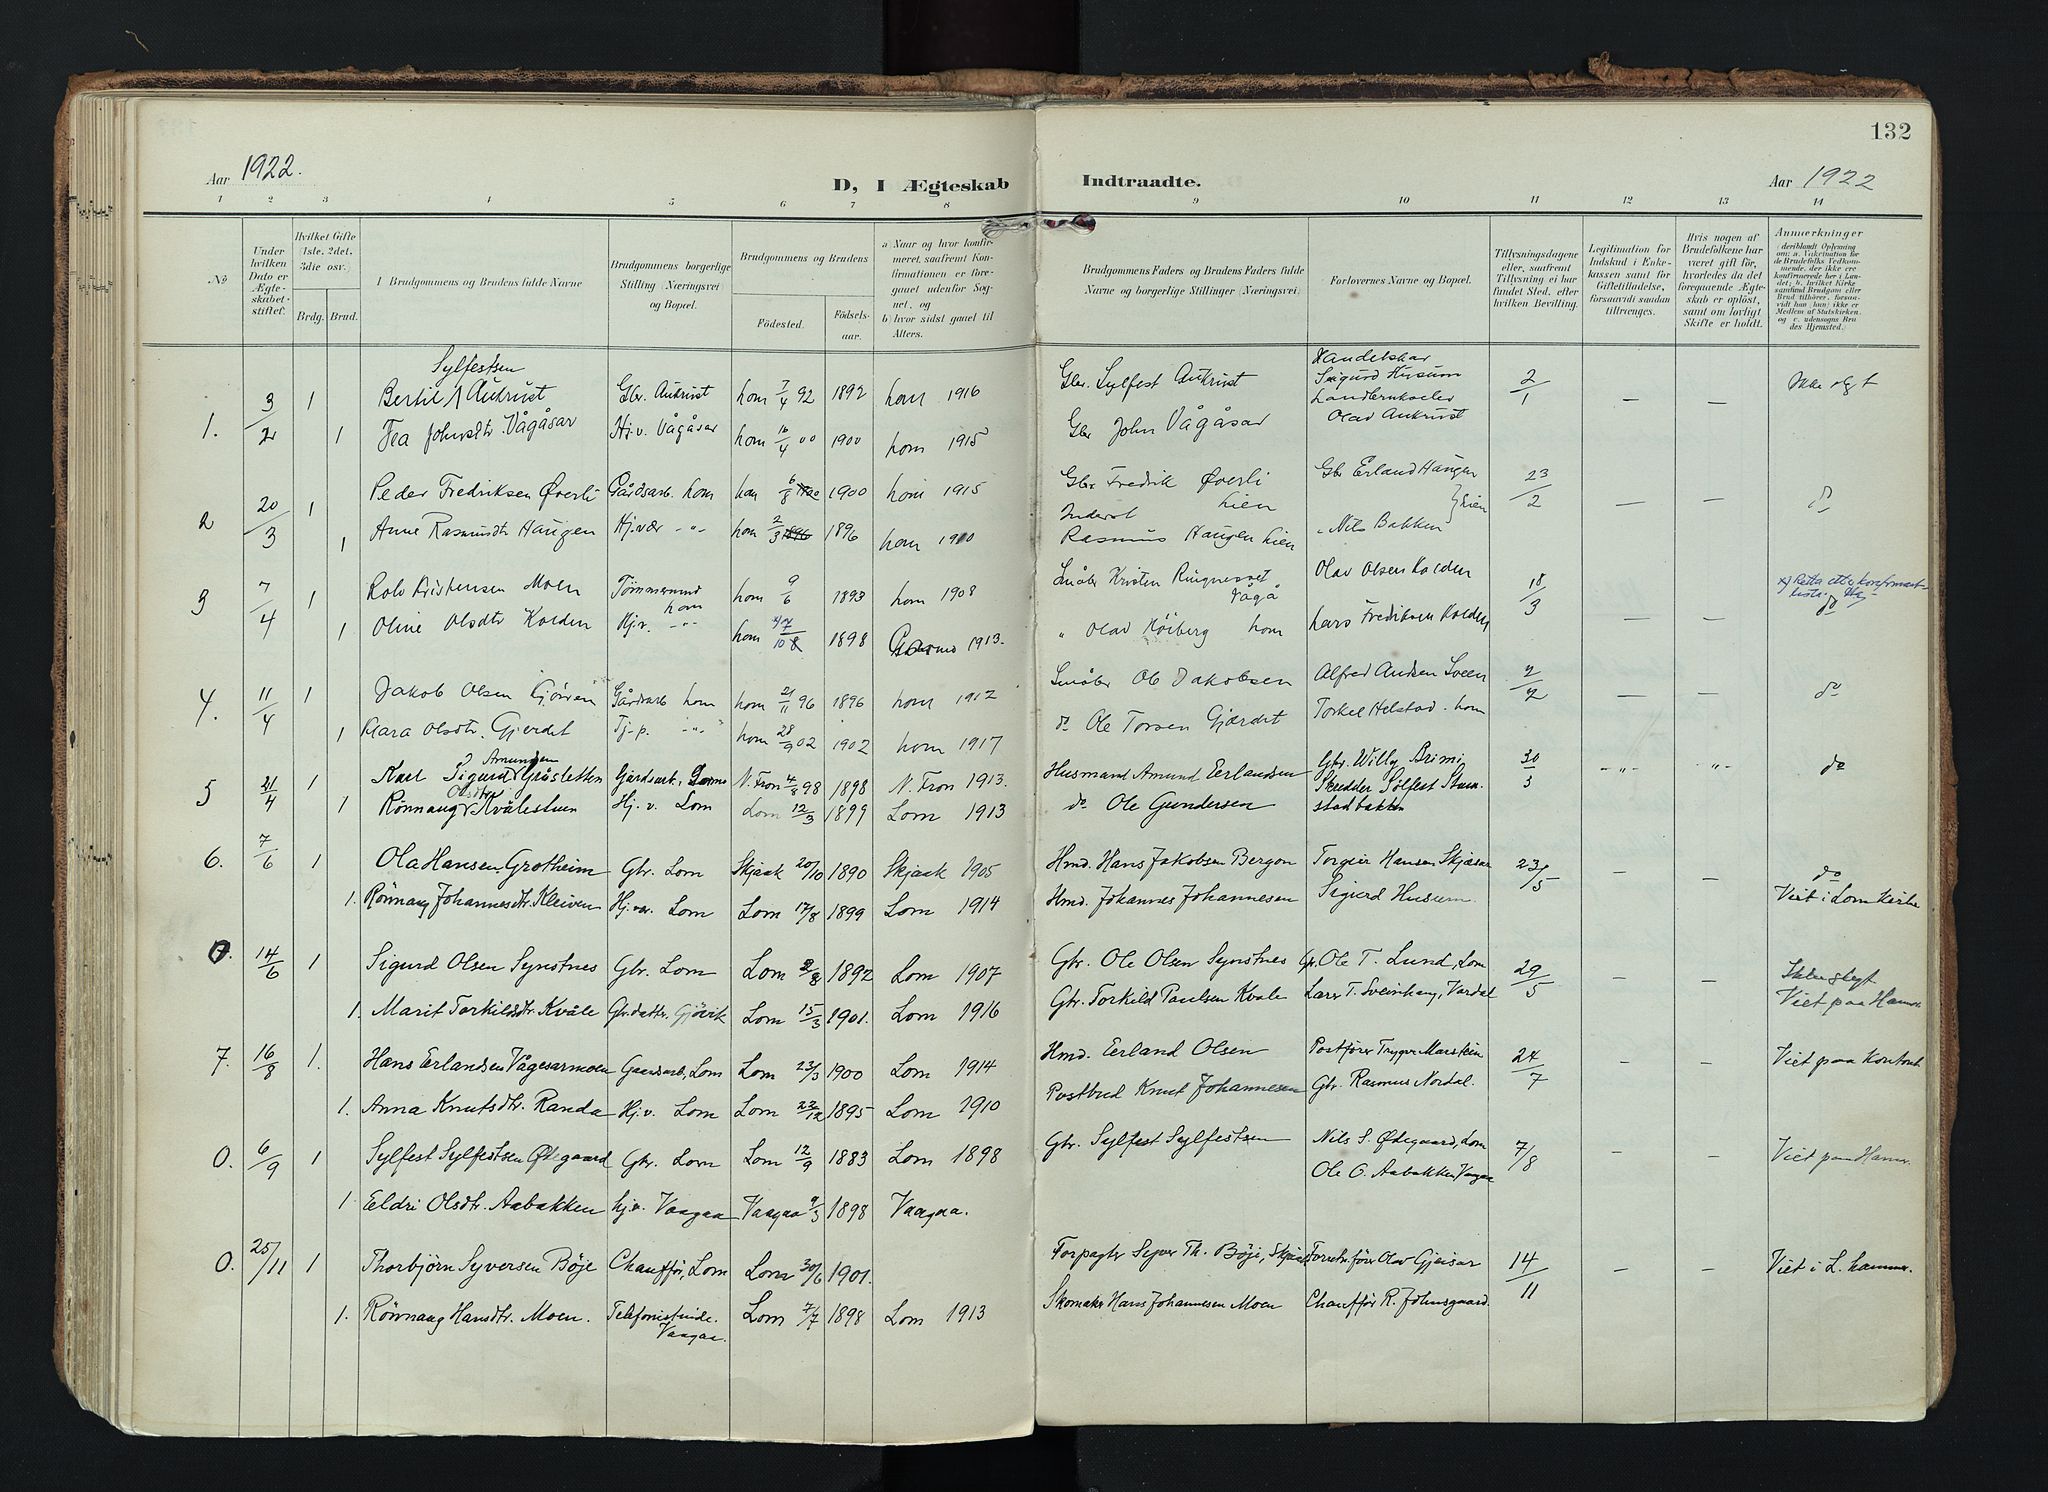 132
Aar 1922.
D, I Ægteskab Indtraadte.
Aar 1922
1 2 3 4 5 6 7 8 9 10 11 12 13 14
No
Under hvilken Dato er Ægteskabet stiftet.
Hvilket Gifte (1ste, 2det, 3die osv.)
Brdg. Brud.
I Brudgommens og Brudens fulde Navne
Brudgommens borgerlige Stilling (Næringsvei) og Bopæl.
Brudgommens og Brudens
Födested. Födselsaar.
a) Naar og hvor konfirmeret, saafremt Konfirmationen er foregaaet udenfor Sognet, og
b) hvor sidst gaaet til Alters.
Brudgommens Faders og Brudens Faders fulde Navne og borgerlige Stillinger (Næringsvei)
Forlovernes Navne og Bopæl.
Tillysningsdagene eller, saafremt Tillysning ei har fundet Sted, efter hvilken Bevilling.
Legitimation for Indskud i Enkekassen samt for Giftetilladelse, forsaavidt saadan tiltrænges.
Hvis nogen af Brudefolkene har været gift för, hvorledes da det foregaaende Ægteskab er oplöst, samt om lovligt Skifte er holdt.
Anmerkninger (deriblandt Oplysning om: a. Vakcination for de Brudefolks Vedkommende, der ikke ere konfirmerede her i Landet; b. hvilket Kirkesamfund Brudgom eller Brud tilhörer, forsaavidt han (hun) ikke er Medlem af Statskirken, og c. udensogns Brudes Hjemsted.
1. 3/2 1 Bertil Sylfestsen Aukrust Gbr. Aukrust Lom 7/4 92 1892 Lom 1916 Gbr. Sylfest Aukrust Handelsbar Sigurd Husum 2/1 — —
1 Tea Johnsdtr. Vågåsar Hj.v. Vågåsar Lom 16/4 00 1900 Lom 1915 Gbr John Vågåsar Olav Aukrust
2 20/3 1 Peder Fredriksen Øverli Gårdsarb. Lom Lom 6/8 1900 Lom 1915 Gbr Fredrik Øverli Lien Gbr Erland Haugen } Lien 23/2 — — do
1 Anne Rasmusdtr Haugen Hj.vær -"- Lom 2/3 1896 1896 Lom 1910 Inderst Rasmus Haugen Lien " Nils Bakken
3 7/4 1 Kristensen Moen Tømmermand Lom Lom 9/6 1893 Lom 1908 Småbr Kristen Ringnesset Vågå Olav Olsen Kolden 18/3 — — x) Rettet etter konfirmantlista. do
1 Oline Olsdtr Kolden Hj.v. -"- Lom x) 7/10 1898 Garmo 1913. " Olav Høiberg Lom Lars Fredriksen Kolden
4. 11/4 1 Jakob Olsen Kjøsven Gårdsarb Lom Lom 21/11 96 1896 Lom 1912 Småbr Ole Jakobsen Alfred Andsen Sveen 2/2 — — do
1 Klara Olsdtr. Gjerdet Tj.p. -"- Lom 28/9 02 1902 Lom 1917 do Ole Torsen Gjærdet Torkel Helstad. Lom
5 21/4 1 Karl Sigurd Amundsen Gråsletten Gårdsarb., Lom N. Fron 4/8 98 1898 N. Fron 1913. Husmand Amund Erlandsen Gbr. Willy Brimi 30/3 -"- -"- do
1 Rønnaug Olsdtr Kvålestuen Hj.v. Lom Lom 12/3 1899 Lom 1913 do Ole Gundersen Skredder Sølfest Stamstadbakken
6. 7/6 1 Ola Hansen Grotheim Gbr. Lom Skjaak 20/10 1890 Skjaak 1905 Hmd. Hans Jakobsen Bergon Torgeir Hansen Skjæsar 23/5 — — do
1. Rønnaug Johannesdtr. Kleiven Hj.vær. Lom Lom 17/8 1899 Lom 1914 Hmd. Johannes Johannesen Sigurd Husum. Viet i Lom Kirke
0. 14/6 1 Sigurd Olsen Synstnes Gbr. Lom Lom 2/8 1892 Lom 1907 Gbr. Ole Olsen Synstnes Gbr. Ole T. Lund, Lom 29/5 — —
1. Marit Torkildsdtr. Kvåle Gbr.datter. Gjøvik Lom 15/3 1901. Lom 1916 Gbr. Torkild Paulsen Kvale Lars T. Sveinhaug, Vardal Viet paa Hamar
7. 16/8 1. Hans Erlandsen Vågesarmoen Gaardsarb., Lom Lom 23/3 1900 Lom 1914 Hmd. Erland Olsen Postfører Trygve Marstein 24/7 — — Viet paa Kontoret
1. Anna Knutsdtr. Randa Hj.v. Lom Lom 22/12 1895 Lom 1910 Postbud Knut Johannesen Gbr. Rasmus Nordal.
0. 6/9 1 Sylfest Sylfestsen Ødegaard Gbr. Lom Lom 12/9 1883 Lom 1898 Gbr. Sylfest Sylfestsen Nils S. Ødegaard, Lom 7/8 — — Viet paa Hamar.
1 Eldri Olsdtr. Aabakken Hj.v. Vaagaa Vaagaa 9/3 1898 Vaagaa. Ole O. Aabakken Vaagaa
0. 25/11 1 Thorbjörn Syversen Böje Chauffør, Lom Lom 30/6 1901. Forpagter Syver Th. Böje, Skjaak Forretn.fører Olav Gjeisar 14/11 — — Viet i L.hammer.
1. Rönnaug Hansdtr. Moen. Telefonistinde. Vaagaa. Lom 7/7 1898 Lom 1913 Skomaker Hans Johannesen Moen Chauffør R. Johnsgaard.